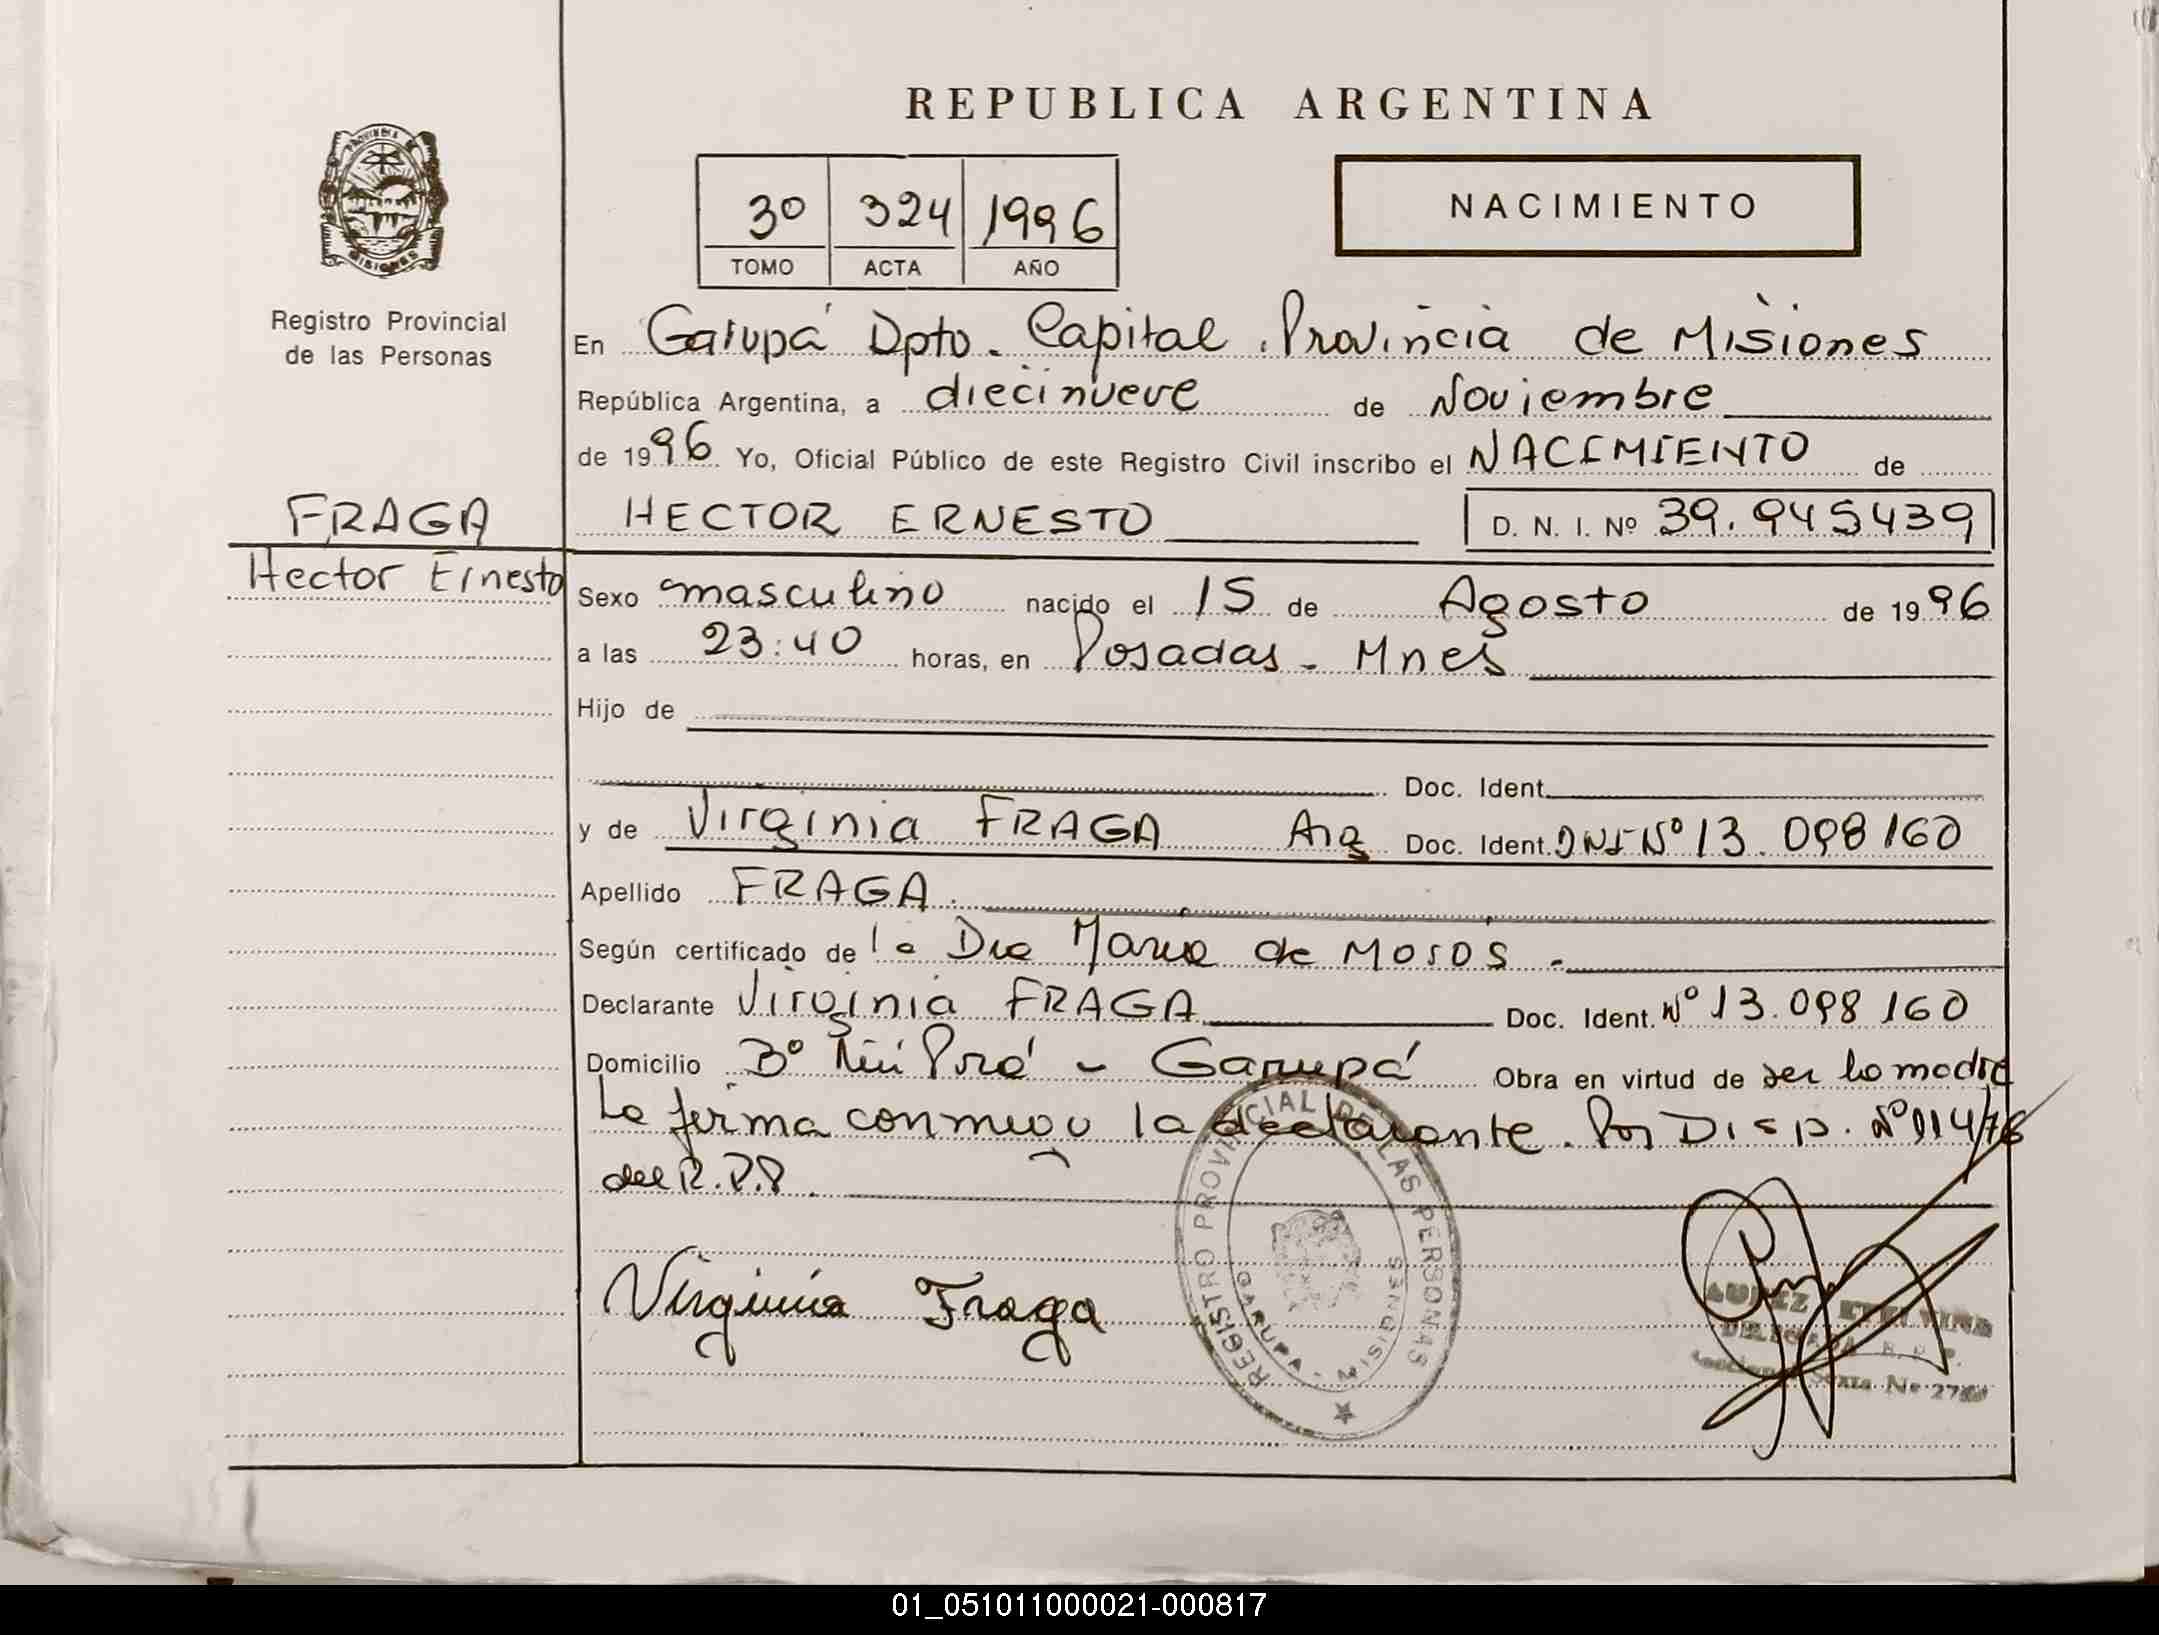 REPUBLICA ARGENTINA
PROVINCIA DE
MISIONES
Registro Provincial
de las Personas
3º 324 1996
TOMO ACTA AÑO
NACIMIENTO
En Garupá Dpto. Capital. Provincia de Misiones
República Argentina, a diecinueve de Noviembre
de 1996 Yo, Oficial Público de este Registro Civil inscribo el NACIMIENTO de
FRAGA
Hector Ernesto
HECTOR ERNESTO D. N. I. Nº 39.945439
Sexo masculino nacido el 15 de Agosto de 1996
a las 23:40 horas, en Posadas - Mnes
Hijo de
Doc. Ident.
y de Virginia FRAGA Arg Doc. Ident. DNI Nº 13.098160
Apellido FRAGA.
Según certificado de la Dra Maria de Moros -
Declarante Virginia FRAGA Doc. Ident. Nº 13.098160
Domicilio Bº Ñu Porá - Garupá Obra en virtud de ser la madre
La firma conmigo la declarante. Por Disp. Nº 114/76
del R.P.P.
Virginia Fraga
REGISTRO PROVINCIAL DE LAS PERSONAS
GARUPA - MISIONES
DELEGADA R. P. P.
Sexta Nº
01_051011000021-000817